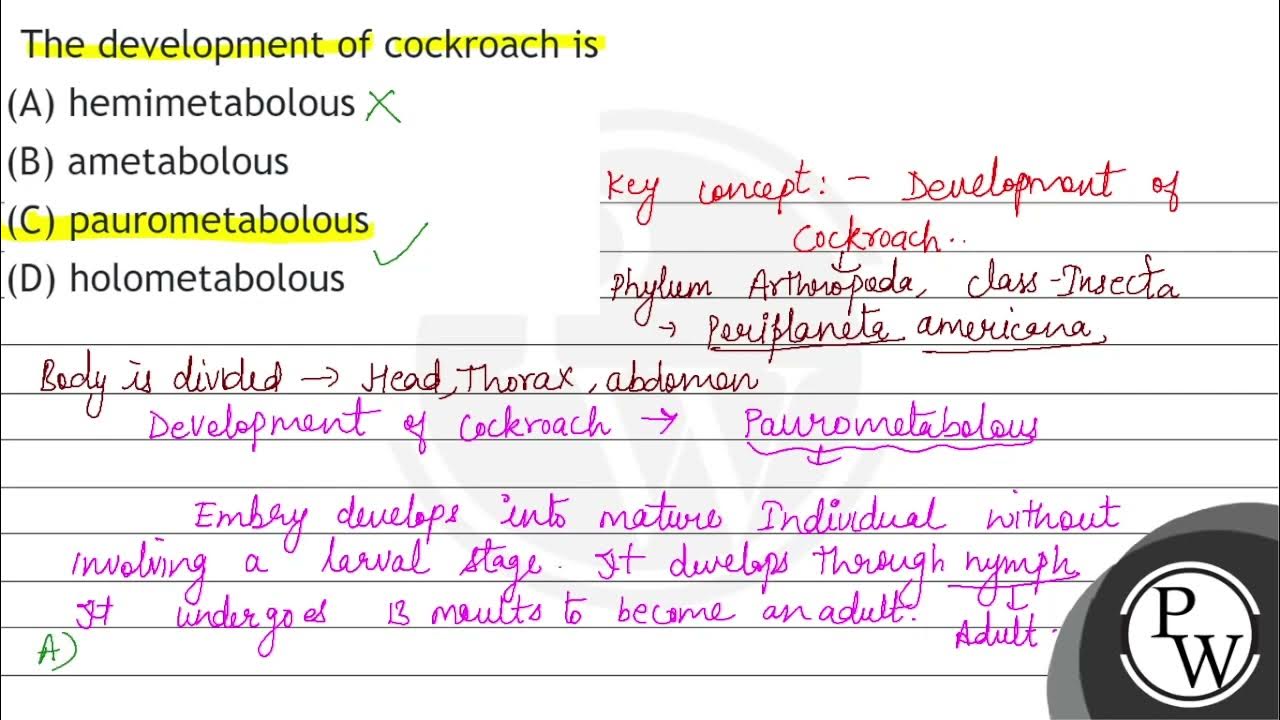 The development of cockroach is
(A) hemimetabolous X
(B) ametabolous
(C) paurometabolous ✓
(D) holometabolous
Key concept: - Development of
Cockroach..
↓
Phylum Arthropoda, class-Insecta
→ Periplaneta americana,
Body is divided → Head, Thorax, abdomen
Development of cockroach → Paurometabolous
↓
Embry develops into mature Individual without
involving a larval stage. It develops through nymph
It undergoes 13 moults to become an adult.
↓
Adult.
A)
P
W